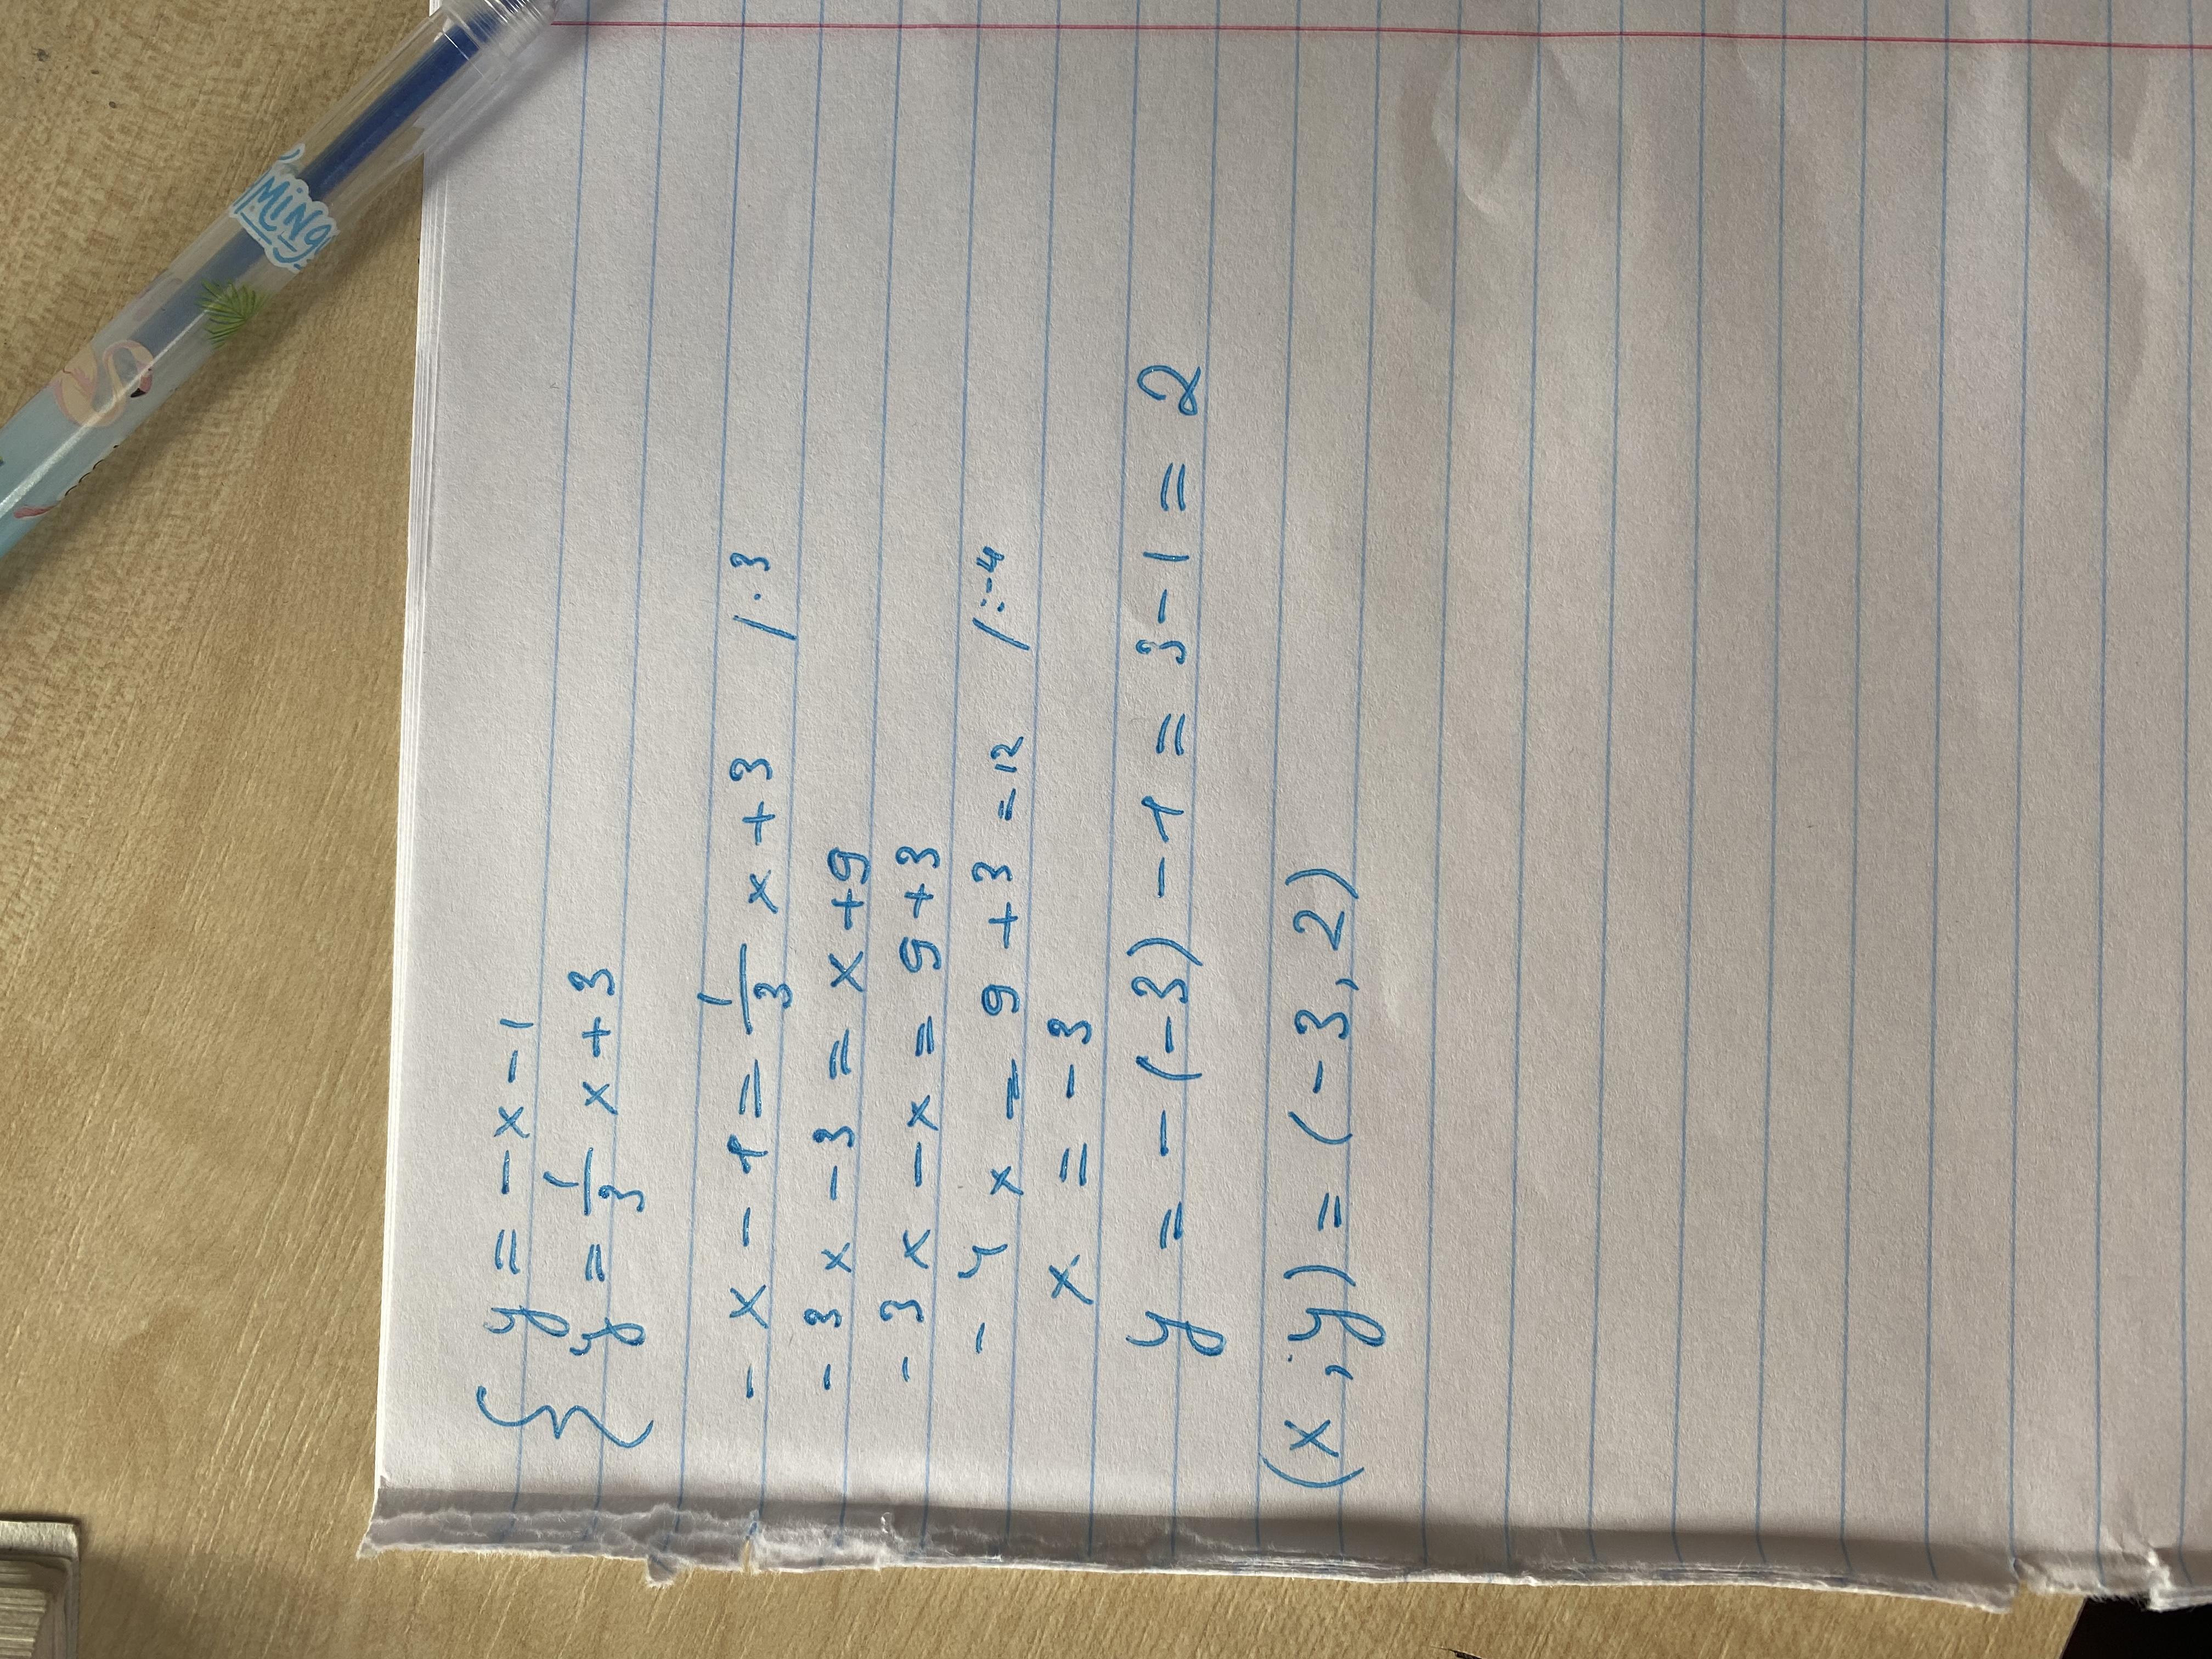 y = -x - 1
y = 1/3 x + 3
-x - 1 = 1/3 x + 3 /·3
-3x - 3 = x + 9
-3x - x = 9 + 3
-4x = 9 + 3 = 12 /:-4
x = -3
y = -(-3) - 1 = 3 - 1 = 2
(x, y) = (-3, 2)
MING